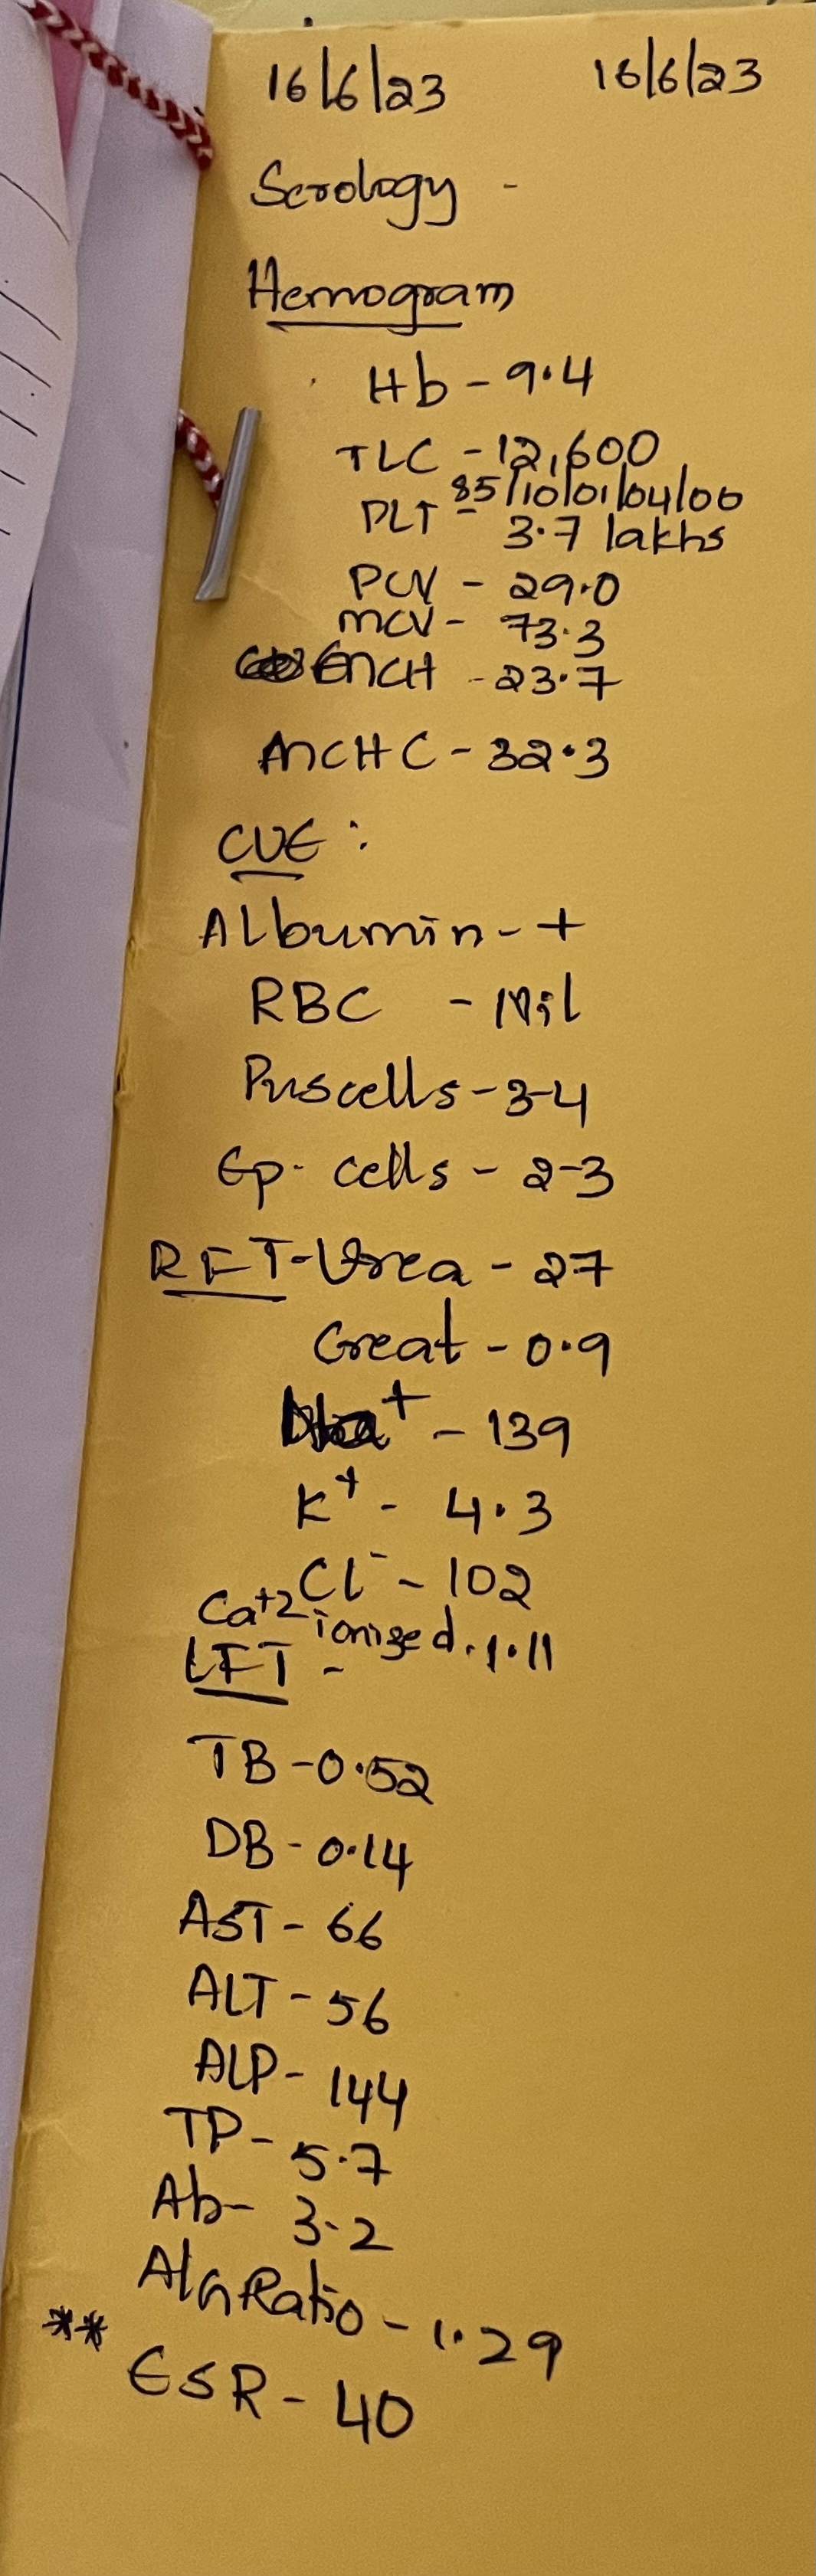 16/6/23 16/6/23
Serology -
Hemogram
Hb - 9.4
TLC - 12,600
85/10/01/04/00
PLT - 3.7 lakhs
PCV - 29.0
MCV - 73.3
MCH - 23.7
MCHC - 32.3
CUE :
Albumin - +
RBC - Nil
Puscells - 3-4
Ep. cells - 2-3
RFT - Urea - 27
Creat - 0.9
Na+ - 139
K+ - 4.3
Cl- - 102
Ca+2 ionized . 1.11
LFT -
TB - 0.52
DB - 0.14
AST - 66
ALT - 56
ALP - 144
TP - 5.7
Alb - 3.2
A/G Ratio - 1.29
** ESR - 40